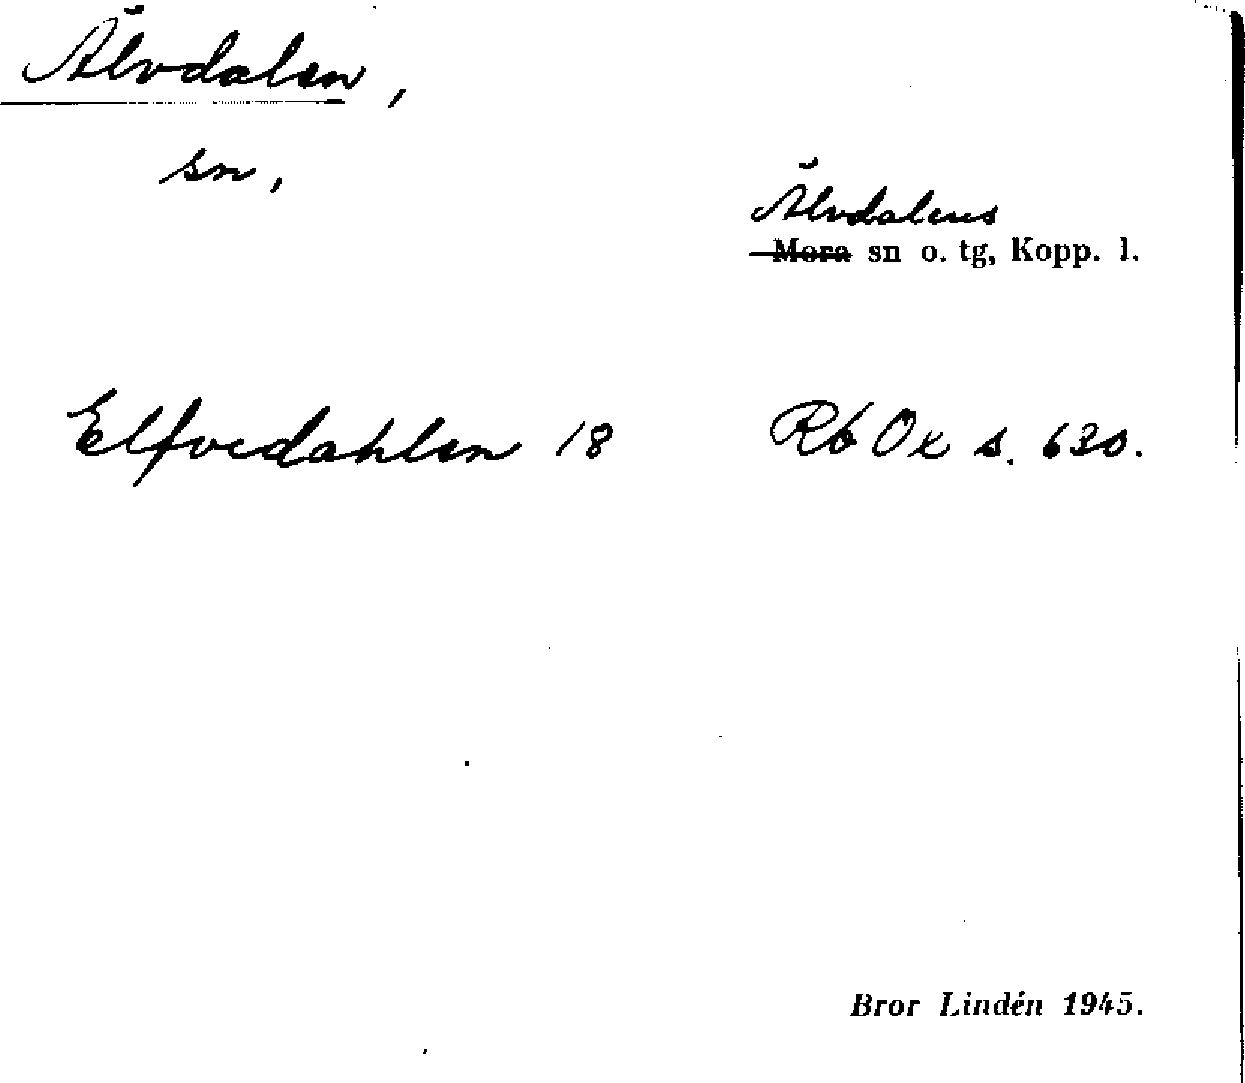 Älvdalen,
sn,
Älvdalens
Mora sn o. tg, Kopp. l.
Elfvedahlen 18 Rb Ox s. 630.
Bror Lindén 1945.